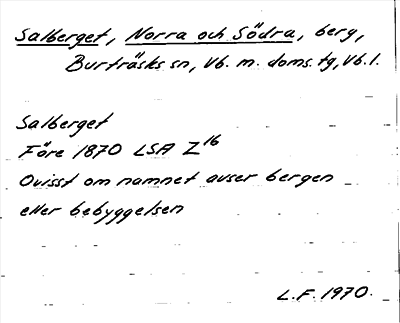 Salberget, Norra och Södra, berg,
Burträsks sn, Vb. m. doms. tg, Vb. l.
Salberget
Före 1870 LSA Z16
Ovisst om namnet avser bergen
eller bebyggelsen
L.F. 1970.